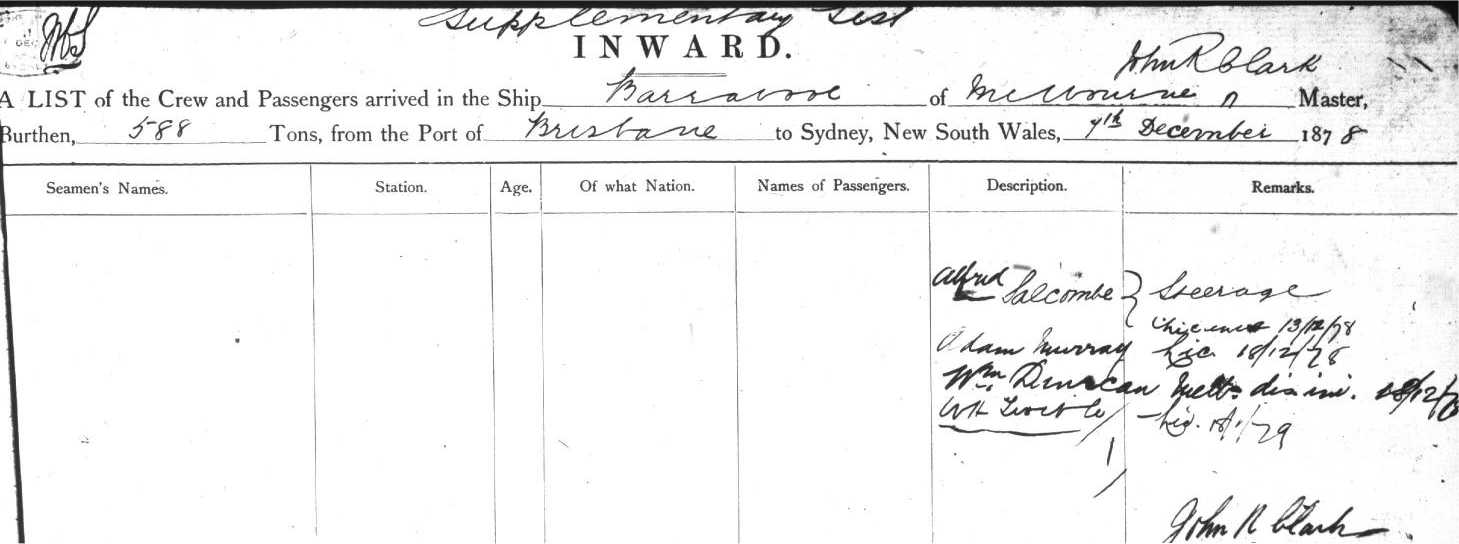 Supplementary List
INWARD.
John R Clark
A LIST of the Crew and Passengers arrived in the Ship Barrabool of Melbourne Master,
Burthen, 588 Tons, from the Port of Brisbane to Sydney, New South Wales, 7th December 1878
Seamen's Names. Station. Age. Of what Nation. Names of Passengers. Description. Remarks.
Alfred Salcombe } Steerage
13/12/78
Adam Murray 18/12/78
Wm Duncan 18/12/78
WH 18/1/79
John R Clark